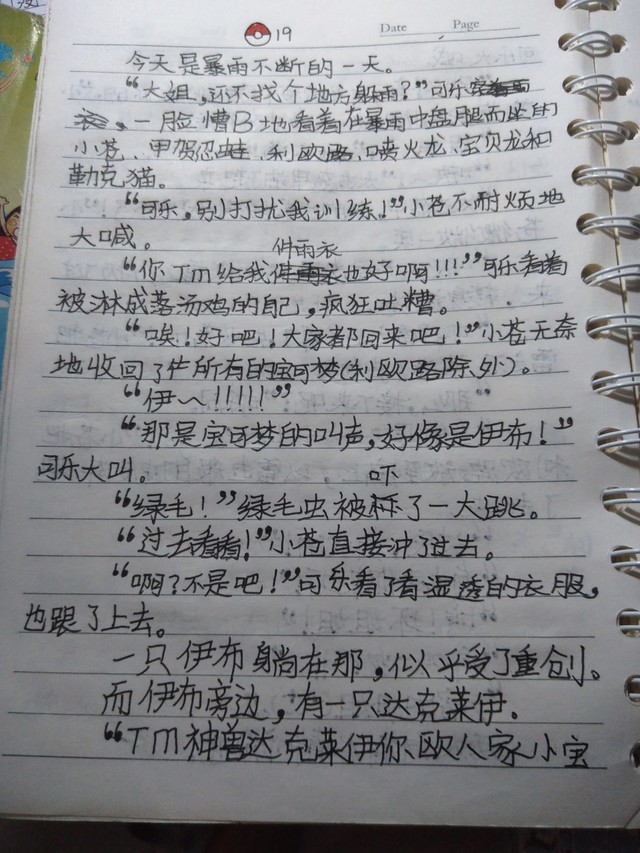 19 Date Page
今天是暴雨不断的一天。
“大姐,还不找个地方躲雨?”可乐
,一脸懵B地看着在暴雨中盘腿而坐的
小苍、甲贺忍蛙、利欧路、喷火龙、宝贝龙和
勒克猫。
“可乐,别打扰我训练!”小苍不耐烦地
大喊。
件雨衣
“你Tm给我也好啊!!!”可乐看着
被淋成落汤鸡的自己,疯狂吐糟。
“唉!好吧!大家都回来吧!”小苍无奈
地收回了所有的宝可梦(利欧路除外)。
“伊~!!!!!”
“那是宝可梦的叫声,好像是伊布!”
可乐大叫。
吓
“绿毛!”绿毛虫被了一大跳。
“过去看看!”小苍直接冲了过去。
“啊?不是吧!”可乐看了看湿透的衣服,
也跟了上去。
一只伊布躺在那,似乎受了重创。
而伊布旁边,有一只达克莱伊.
“TM神兽达克莱伊你欧人家小宝